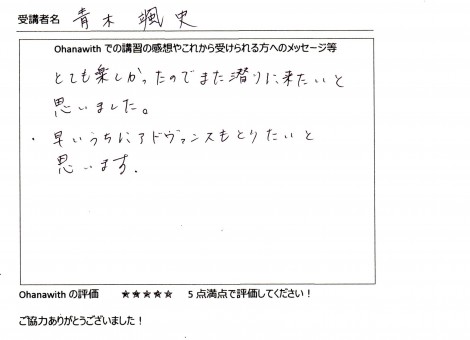 受講者名 青木 颯史
Ohanawith での講習の感想やこれから受けられる方へのメッセージ等
とても楽しかったのでまた潜りに来たいと
思いました。
・早いうちにアドヴァンスもとりたいと
思います.
Ohanawith の評価 ★★★★★ 5 点満点で評価してください！
ご協力ありがとうございました！